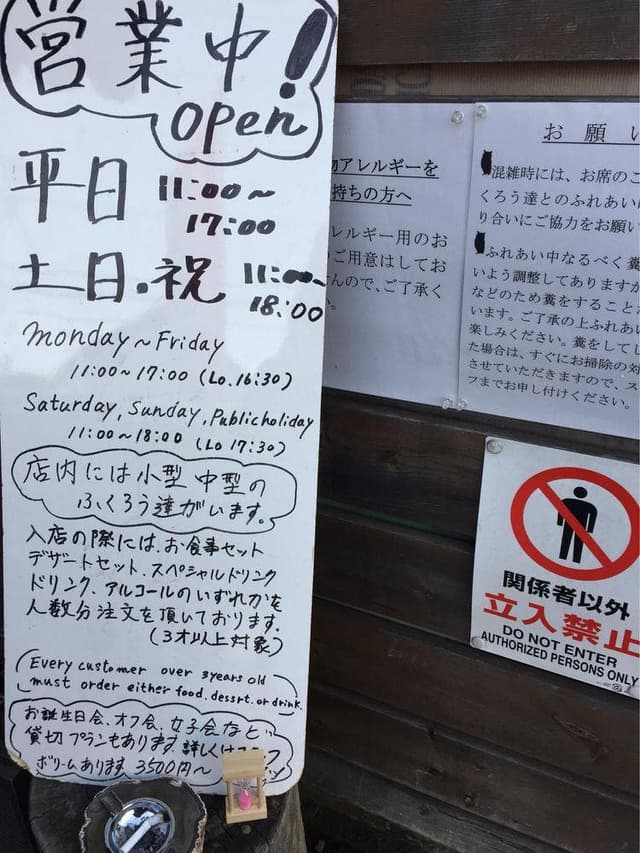 営業中!
open
平日 11:00~
17:00
土日・祝 11:00~
18:00
monday~Friday
11:00~17:00 (Lo.16:30)
Saturday, Sunday, Publicholiday
11:00~18:00 (Lo 17:30)
店内には小型 中型の
ふくろう達がいます。
入店の際には、お食事セット
デザートセット、スペシャルドリンク
ドリンク、アルコールのいずれかを
人数分注文を頂いております。
(3才以上対象)
Every customer over 3years old
must order either food. dessrt. or drink.
お誕生日会、オフ会、女子会など
貸切プランもあります。詳しくはスタッフ
ボリュームあります 3500円~
アレルギーを
持ちの方へ
レルギー用のお
ご用意はしてお
んので、ご了承く
お願い
混雑時には、お席のご
くろう達とのふれあい
り合いにご協力をお願い
ふれあい中なるべく糞
いよう調整してありますが
などのため糞をすること
います。ご了承の上ふれあい
楽しみください。糞をして
た場合は、すぐにお掃除の対
させていただきますので、ス
フまでお申し付けください。
関係者以外
立入禁止
DO NOT ENTER
AUTHORIZED PERSONS ONLY